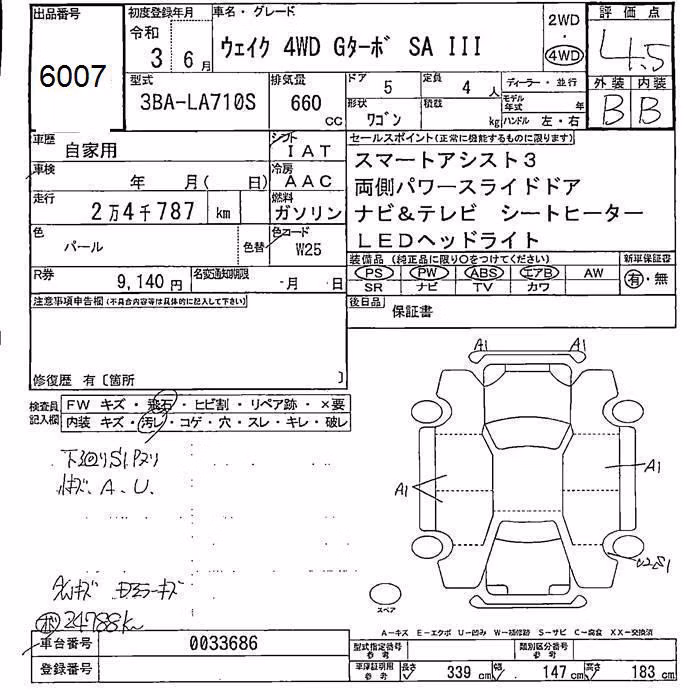 出品番号
6007
初度登録年月
令和
3年 6月
車名・グレード
ウェイク 4WD Gターボ SA III
2WD
・
4WD
評価点
4.5
型式
3BA-LA710S
排気量
660
CC
ドア 5
定員 4人
形状 ワゴン
積載 kg
ディーラー・並行
モデル年式 年
ハンドル 左・右
外装 内装
B B
車歴
自家用
シフト
IAT
車検
年 月( 日)
冷房
AAC
走行
2万4千787 km
燃料
ガソリン
色
パール
色替
色コード
W25
R券
9,140円
名変通知期限
-月 -日
セールスポイント(正常に機能するものに限ります)
スマートアシスト3
両側パワースライドドア
ナビ&テレビ シートヒーター
LEDヘッドライト
装備品 (純正品に限り○をつけてください)
新車保証書
PS PW ABS エアB AW
有・無
SR ナビ TV カワ
後日品
保証書
注意事項申告欄(不具合内容等は具体的に記入して下さい)
修復歴 有〔箇所 〕
検査員
記入欄
FW キズ・飛石・ヒビ割・リペア跡・×要
内装 キズ・汚レ・コゲ・穴・スレ・キレ・破レ
下廻りS1
キズ、A、U.
24788k
A1 A1
A1
A1
スペア
A－キズ E－エクボ U－凹み W－補修跡 S－サビ C－腐食 XX－交換済
車台番号
0033686
登録番号
型式指定番号
参考
類別区分番号
参考
車庫証明用
参考
長さ 339 cm
幅 147 cm
高さ 183 cm